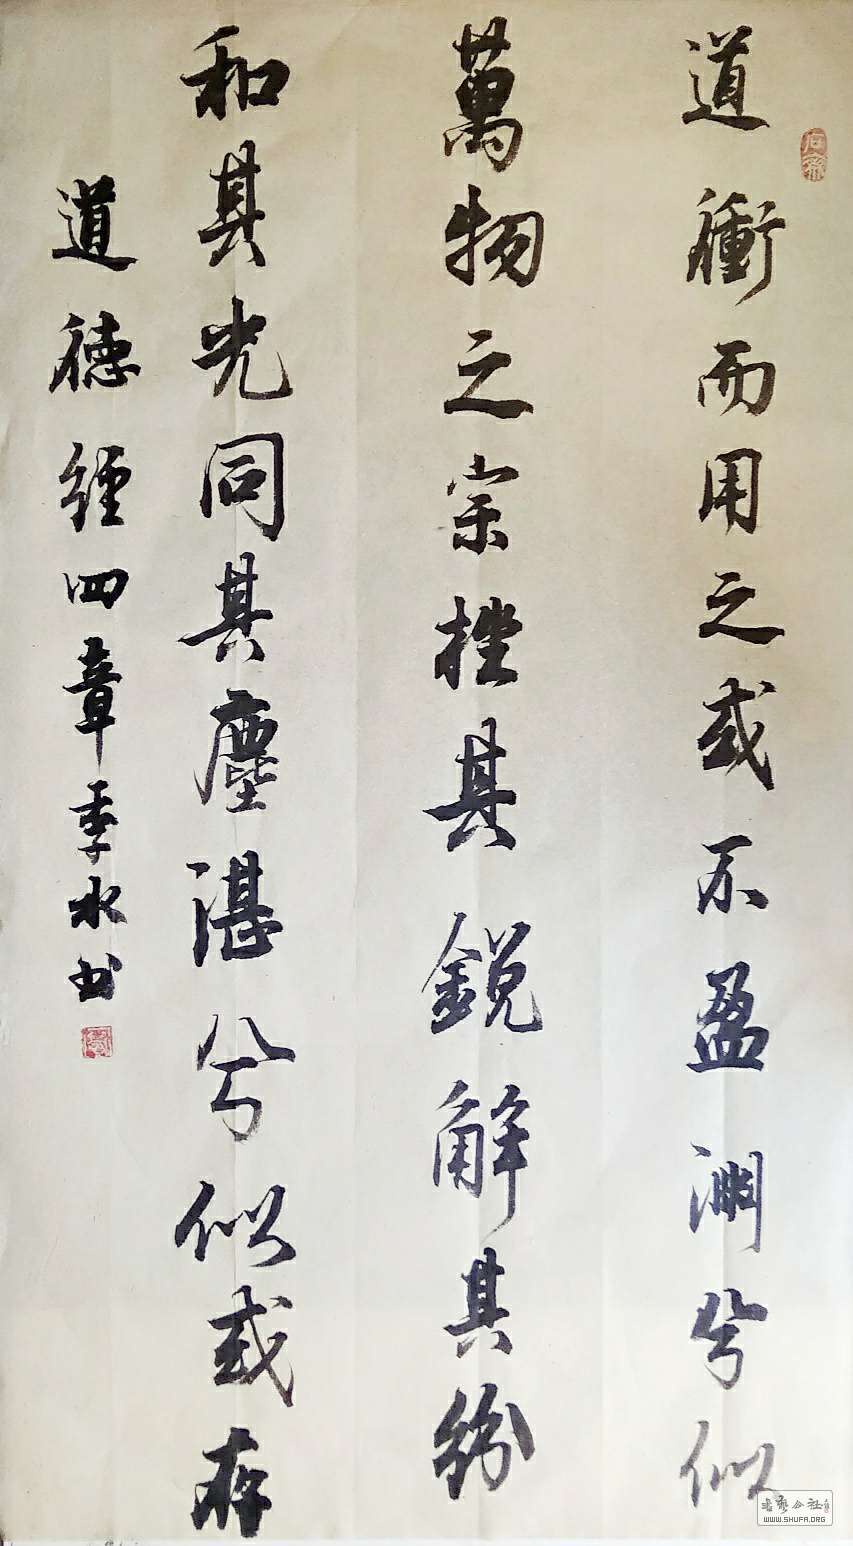 道衝而用之或不盈淵兮似
萬物之宗挫其銳解其紛
和其光同其塵湛兮似或存
道德經四章季水书
WWW.SHUFA.ORG